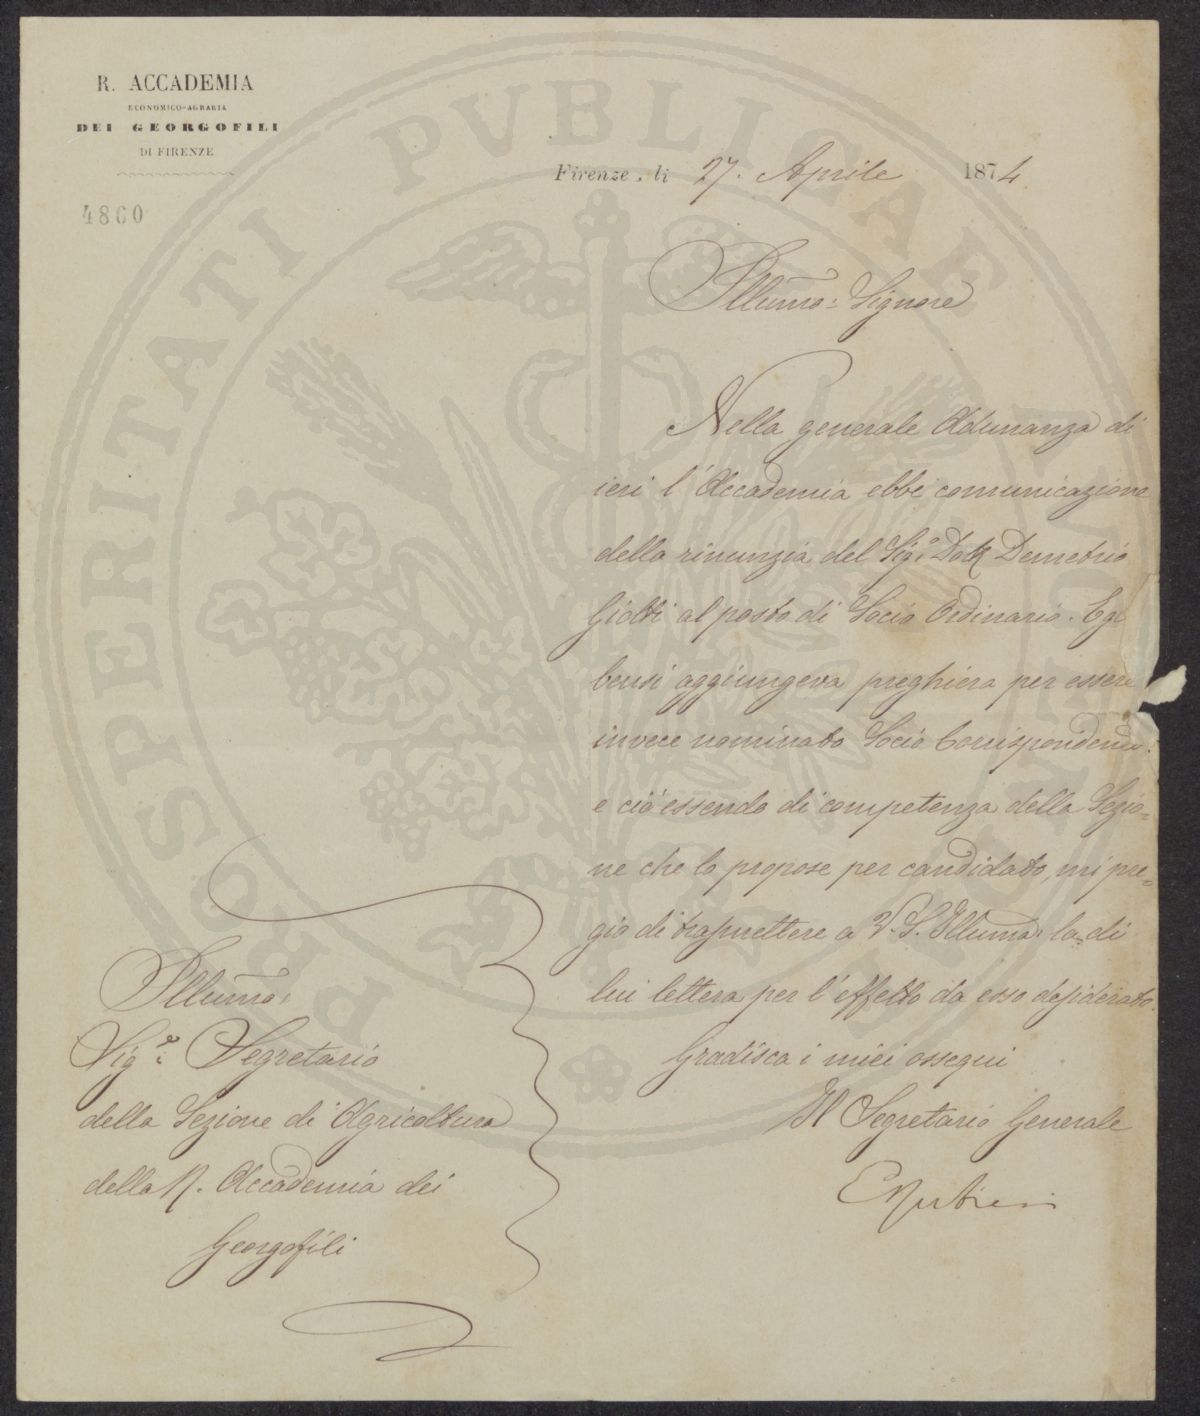 R. ACCADEMIA
ECONOMICO-AGRARIA
DEI GEORGOFILI
DI FIRENZE
4860
Firenze, li 27. Aprile 1874
Illumo: Signore
Nella generale Adunanza di
ieri l'Accademia ebbe comunicazione
della rinunzia del Sigr. Dott Demetrio
Giotti al posto di Socio Ordinario. Egli
bensi aggiungeva preghiera per essere
invece nominato Socio Corrispondente:
e ciò essendo di competenza della Sezio=
ne che lo propose per candidato, mi pre=
gio di trasmettere a V. S. Illuma: la di
lui lettera per l'effetto da esso desiderato.
Gradisca i miei ossequi
Il Segretario Generale
Illumo:
Sigre: Segretario
della Sezione di Agricoltura
della R. Accademia dei
Georgofili
PROSPERITATI PVBLICAE AVGENDAE